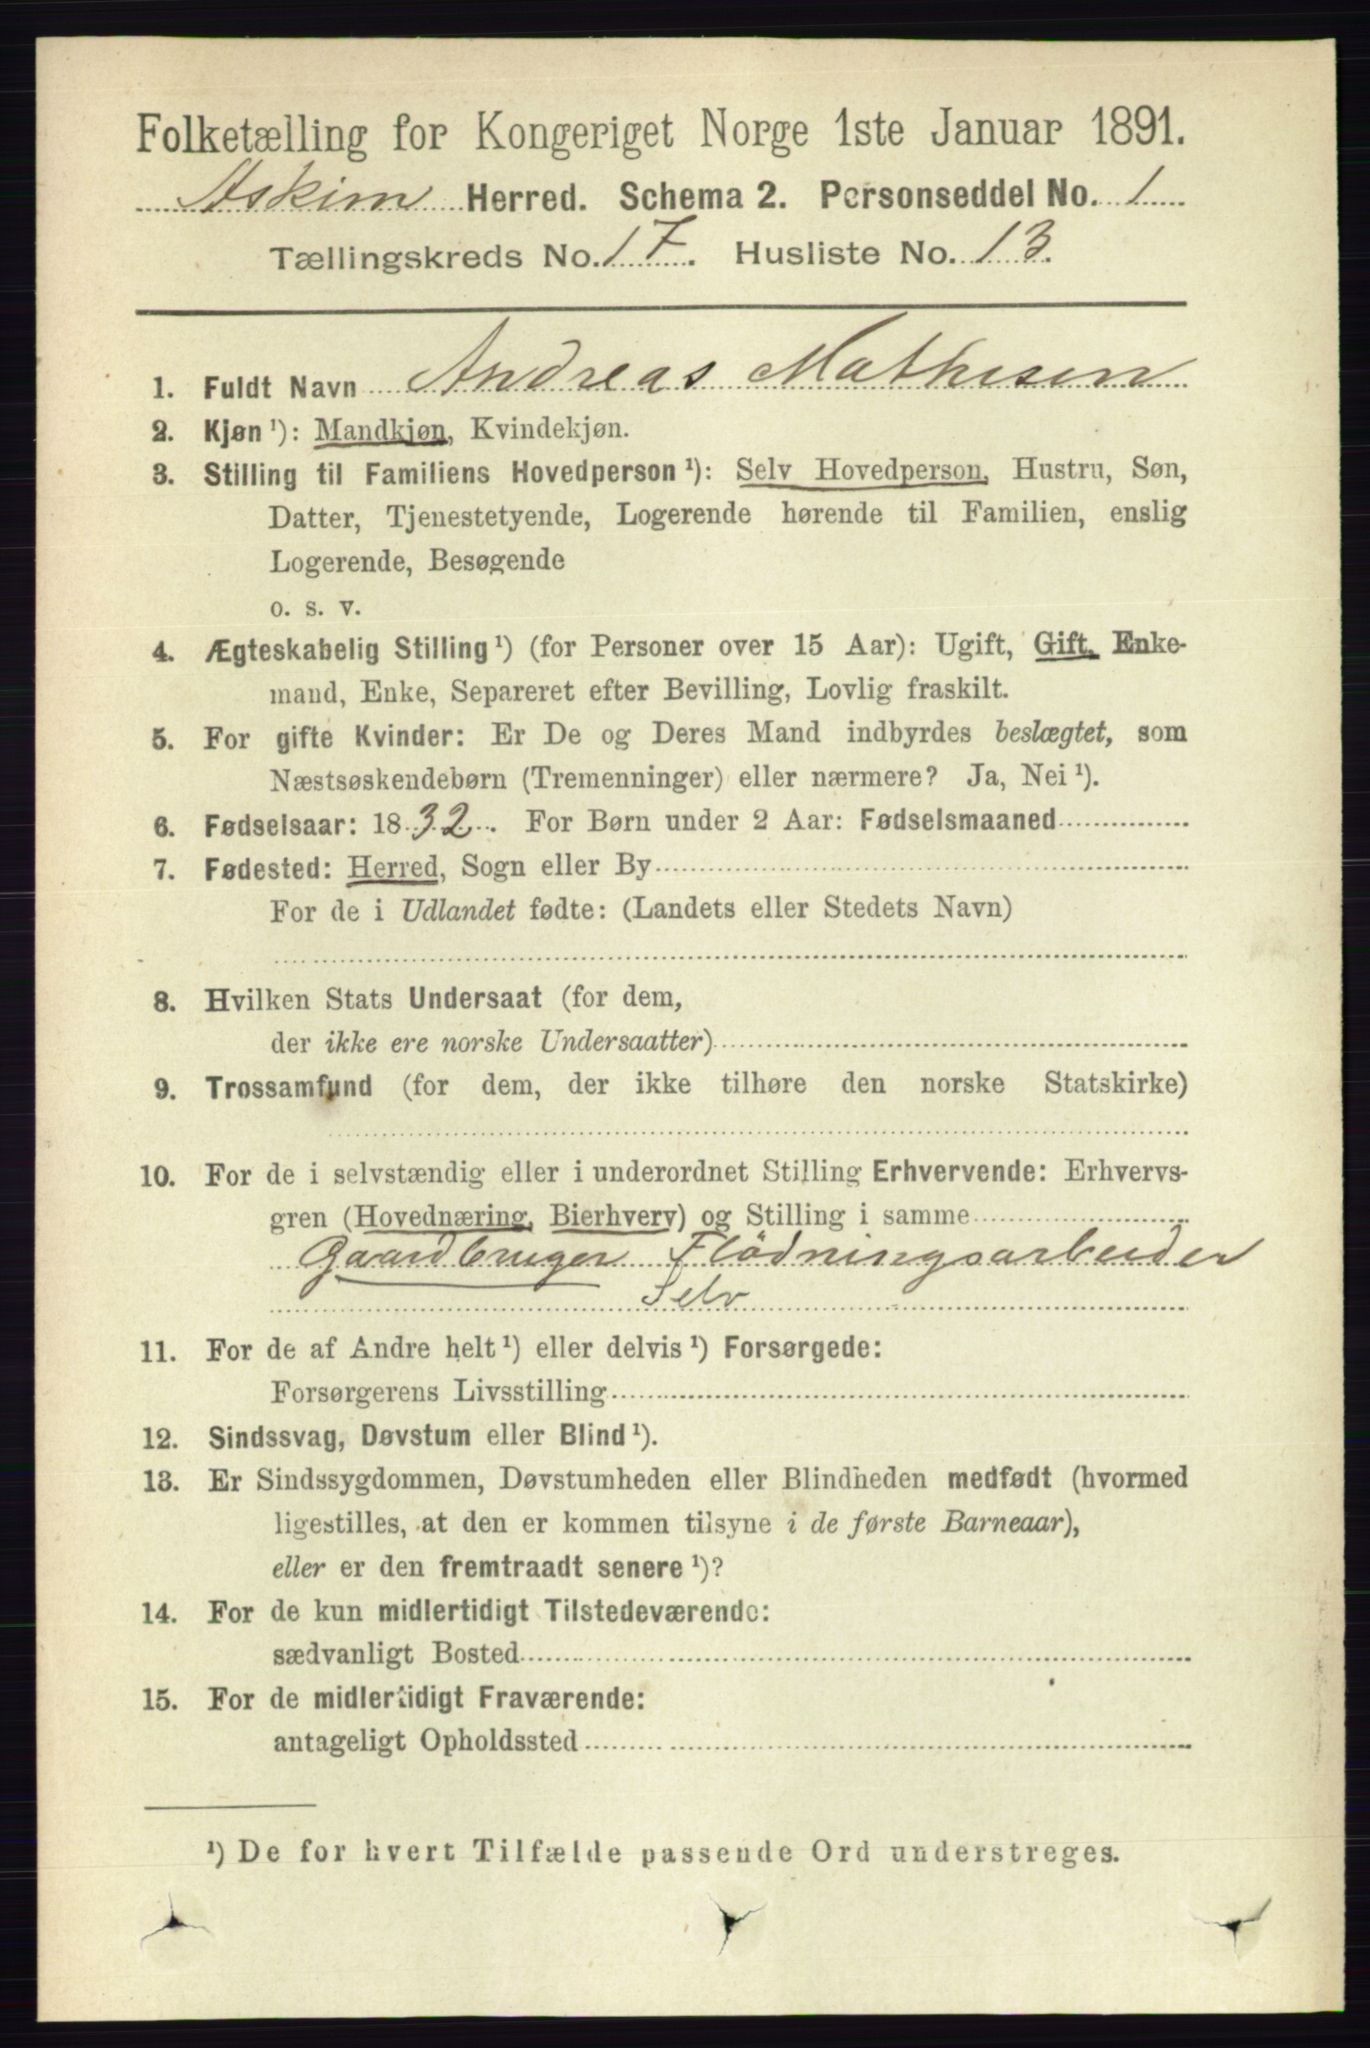 Folketælling for Kongeriget Norge 1ste Januar 1891.
Askim Herred. Schema 2. Personseddel No. 1
Tællingskreds No. 17. Husliste No. 13.
1. Fuldt Navn Andreas Mathisen
2. Kjøn¹): Mandkjøn, Kvindekjøn.
3. Stilling til Familiens Hovedperson¹): Selv Hovedperson, Hustru, Søn,
Datter, Tjenestetyende, Logerende hørende til Familien, enslig
Logerende, Besøgende
o. s. v.
4. Ægteskabelig Stilling¹) (for Personer over 15 Aar): Ugift, Gift, Enke-
mand, Enke, Separeret efter Bevilling, Lovlig fraskilt.
5. For gifte Kvinder: Er De og Deres Mand indbyrdes beslægtet, som
Næstsøskendebørn (Tremenninger) eller nærmere? Ja, Nei¹).
6. Fødselsaar: 1832. For Børn under 2 Aar: Fødselsmaaned
7. Fødested: Herred, Sogn eller By
For de i Udlandet fødte: (Landets eller Stedets Navn)
8. Hvilken Stats Undersaat (for dem,
der ikke ere norske Undersaatter)
9. Trossamfund (for dem, der ikke tilhøre den norske Statskirke)
10. For de i selvstændig eller i underordnet Stilling Erhvervende: Erhvervs-
gren (Hovednæring, Bierhverv) og Stilling i samme
Gaardbruger Flödningsarbeider
Selv
11. For de af Andre helt¹) eller delvis¹) Forsørgede:
Forsørgerens Livsstilling
12. Sindssvag, Døvstum eller Blind¹).
13. Er Sindssygdommen, Døvstumheden eller Blindheden medfødt (hvormed
ligestilles, at den er kommen tilsyne i de første Barneaar),
eller er den fremtraadt senere¹)?
14. For de kun midlertidigt Tilstedeværende:
sædvanligt Bosted
15. For de midlertidigt Fraværende:
antageligt Opholdssted
¹) De for hvert Tilfælde passende Ord understreges.